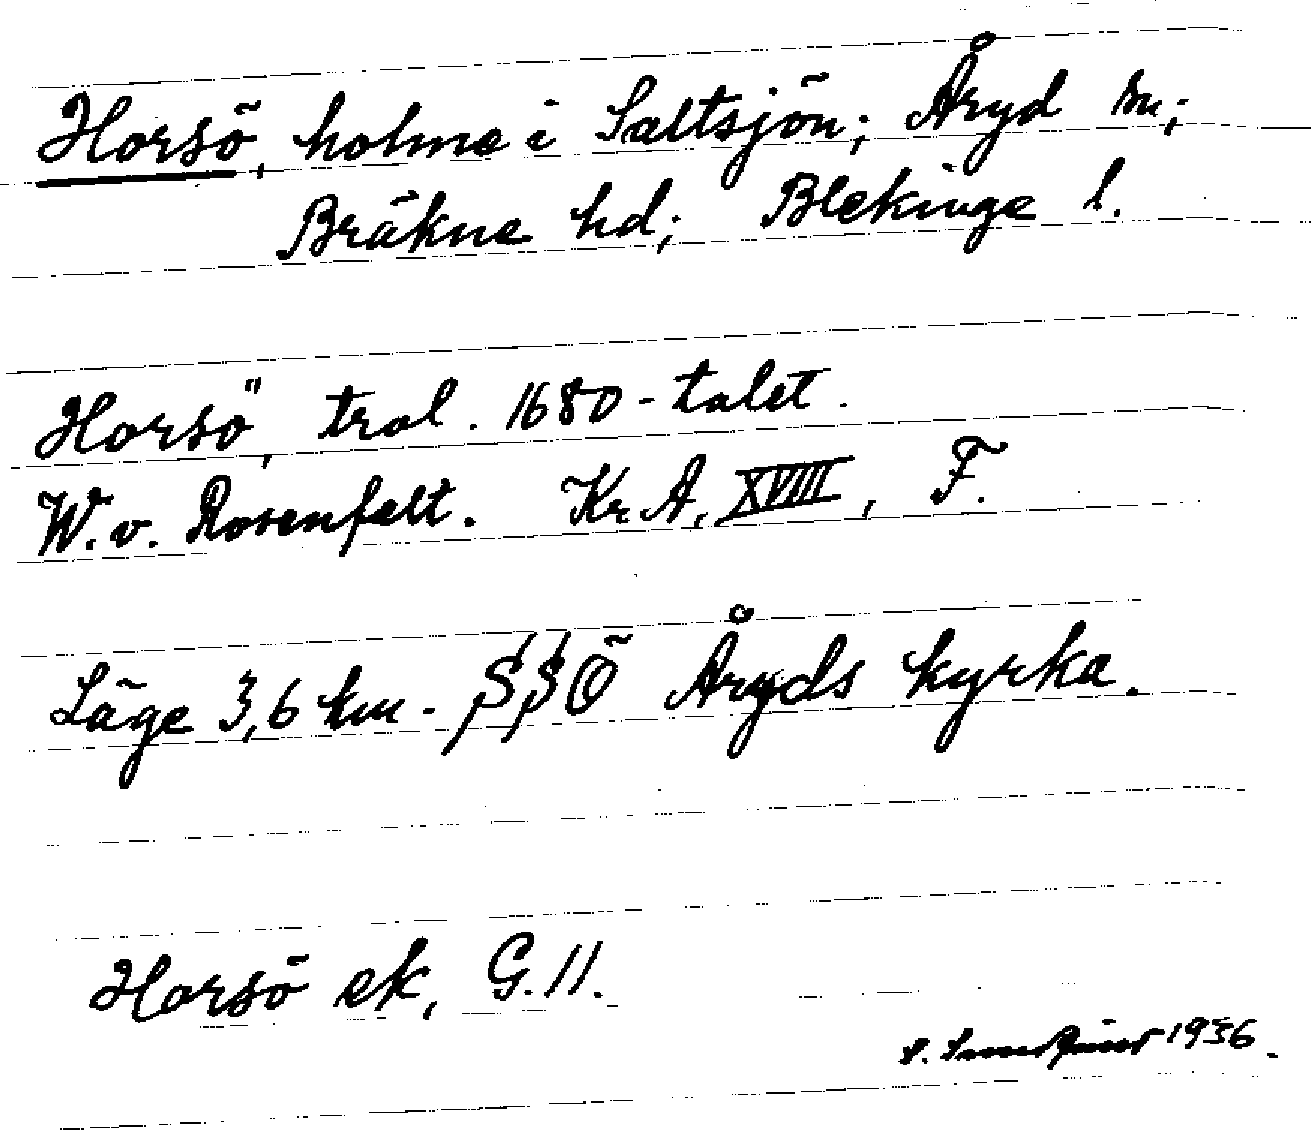 Horsö, holme i Saltsjön; Åryd sn;
Bräkne hd; Blekinge l.
Horsö", tral. 1680-talet.
W. v. Rosenfelt. Kr. A, XVIII, F.
Läge 3,6 km. SSÖ Åryds kyrka.
Horsö ek, G. 11.
1936.